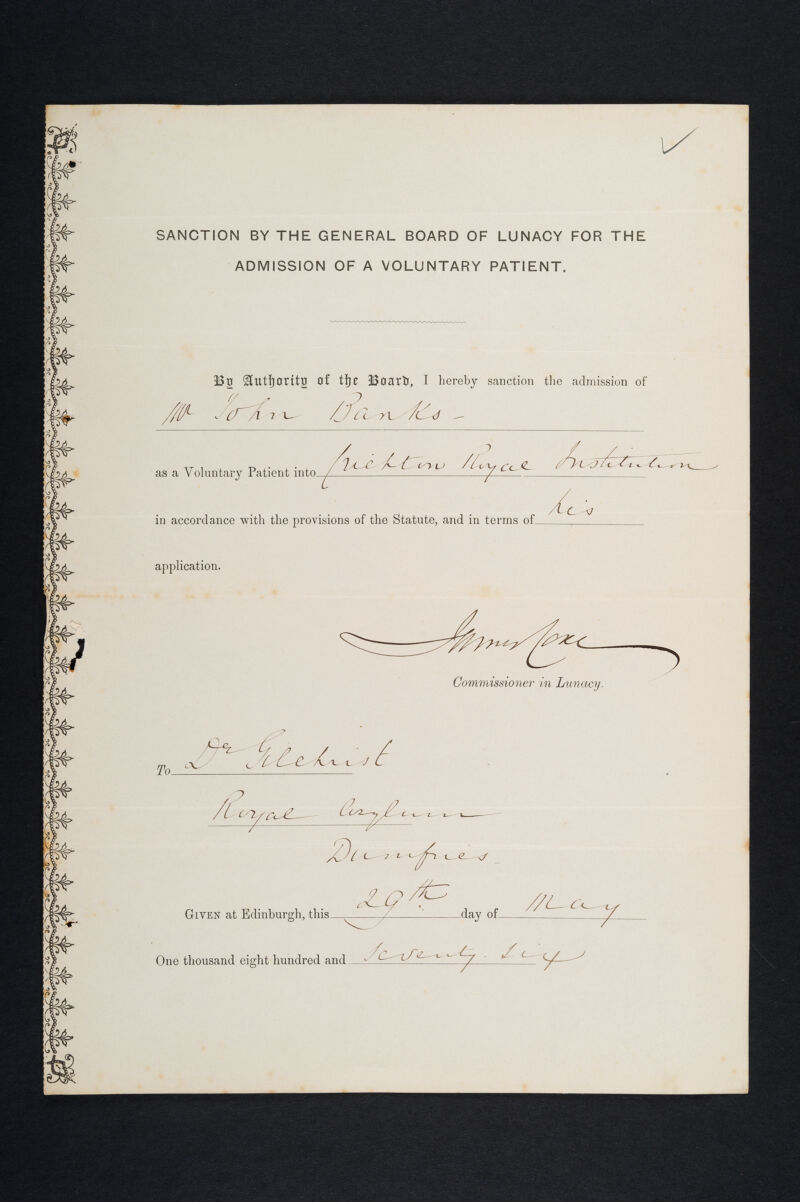 SANCTION BY THE GENERAL BOARD OF LUNACY FOR THE
ADMISSION OF A VOLUNTARY PATIENT.
By Authority of the Board, I hereby sanction the admission of
Mr John Banks -
as a Voluntary Patient into Crichton Royal Institution
in accordance with the provisions of the Statute, and in terms of his
application.
James Coxe
Commissioner in Lunacy.
To Dr Gilchrist
Royal Asylum
Dumfries
GIVEN at Edinburgh, this 29th day of May
One thousand eight hundred and Seventy Six